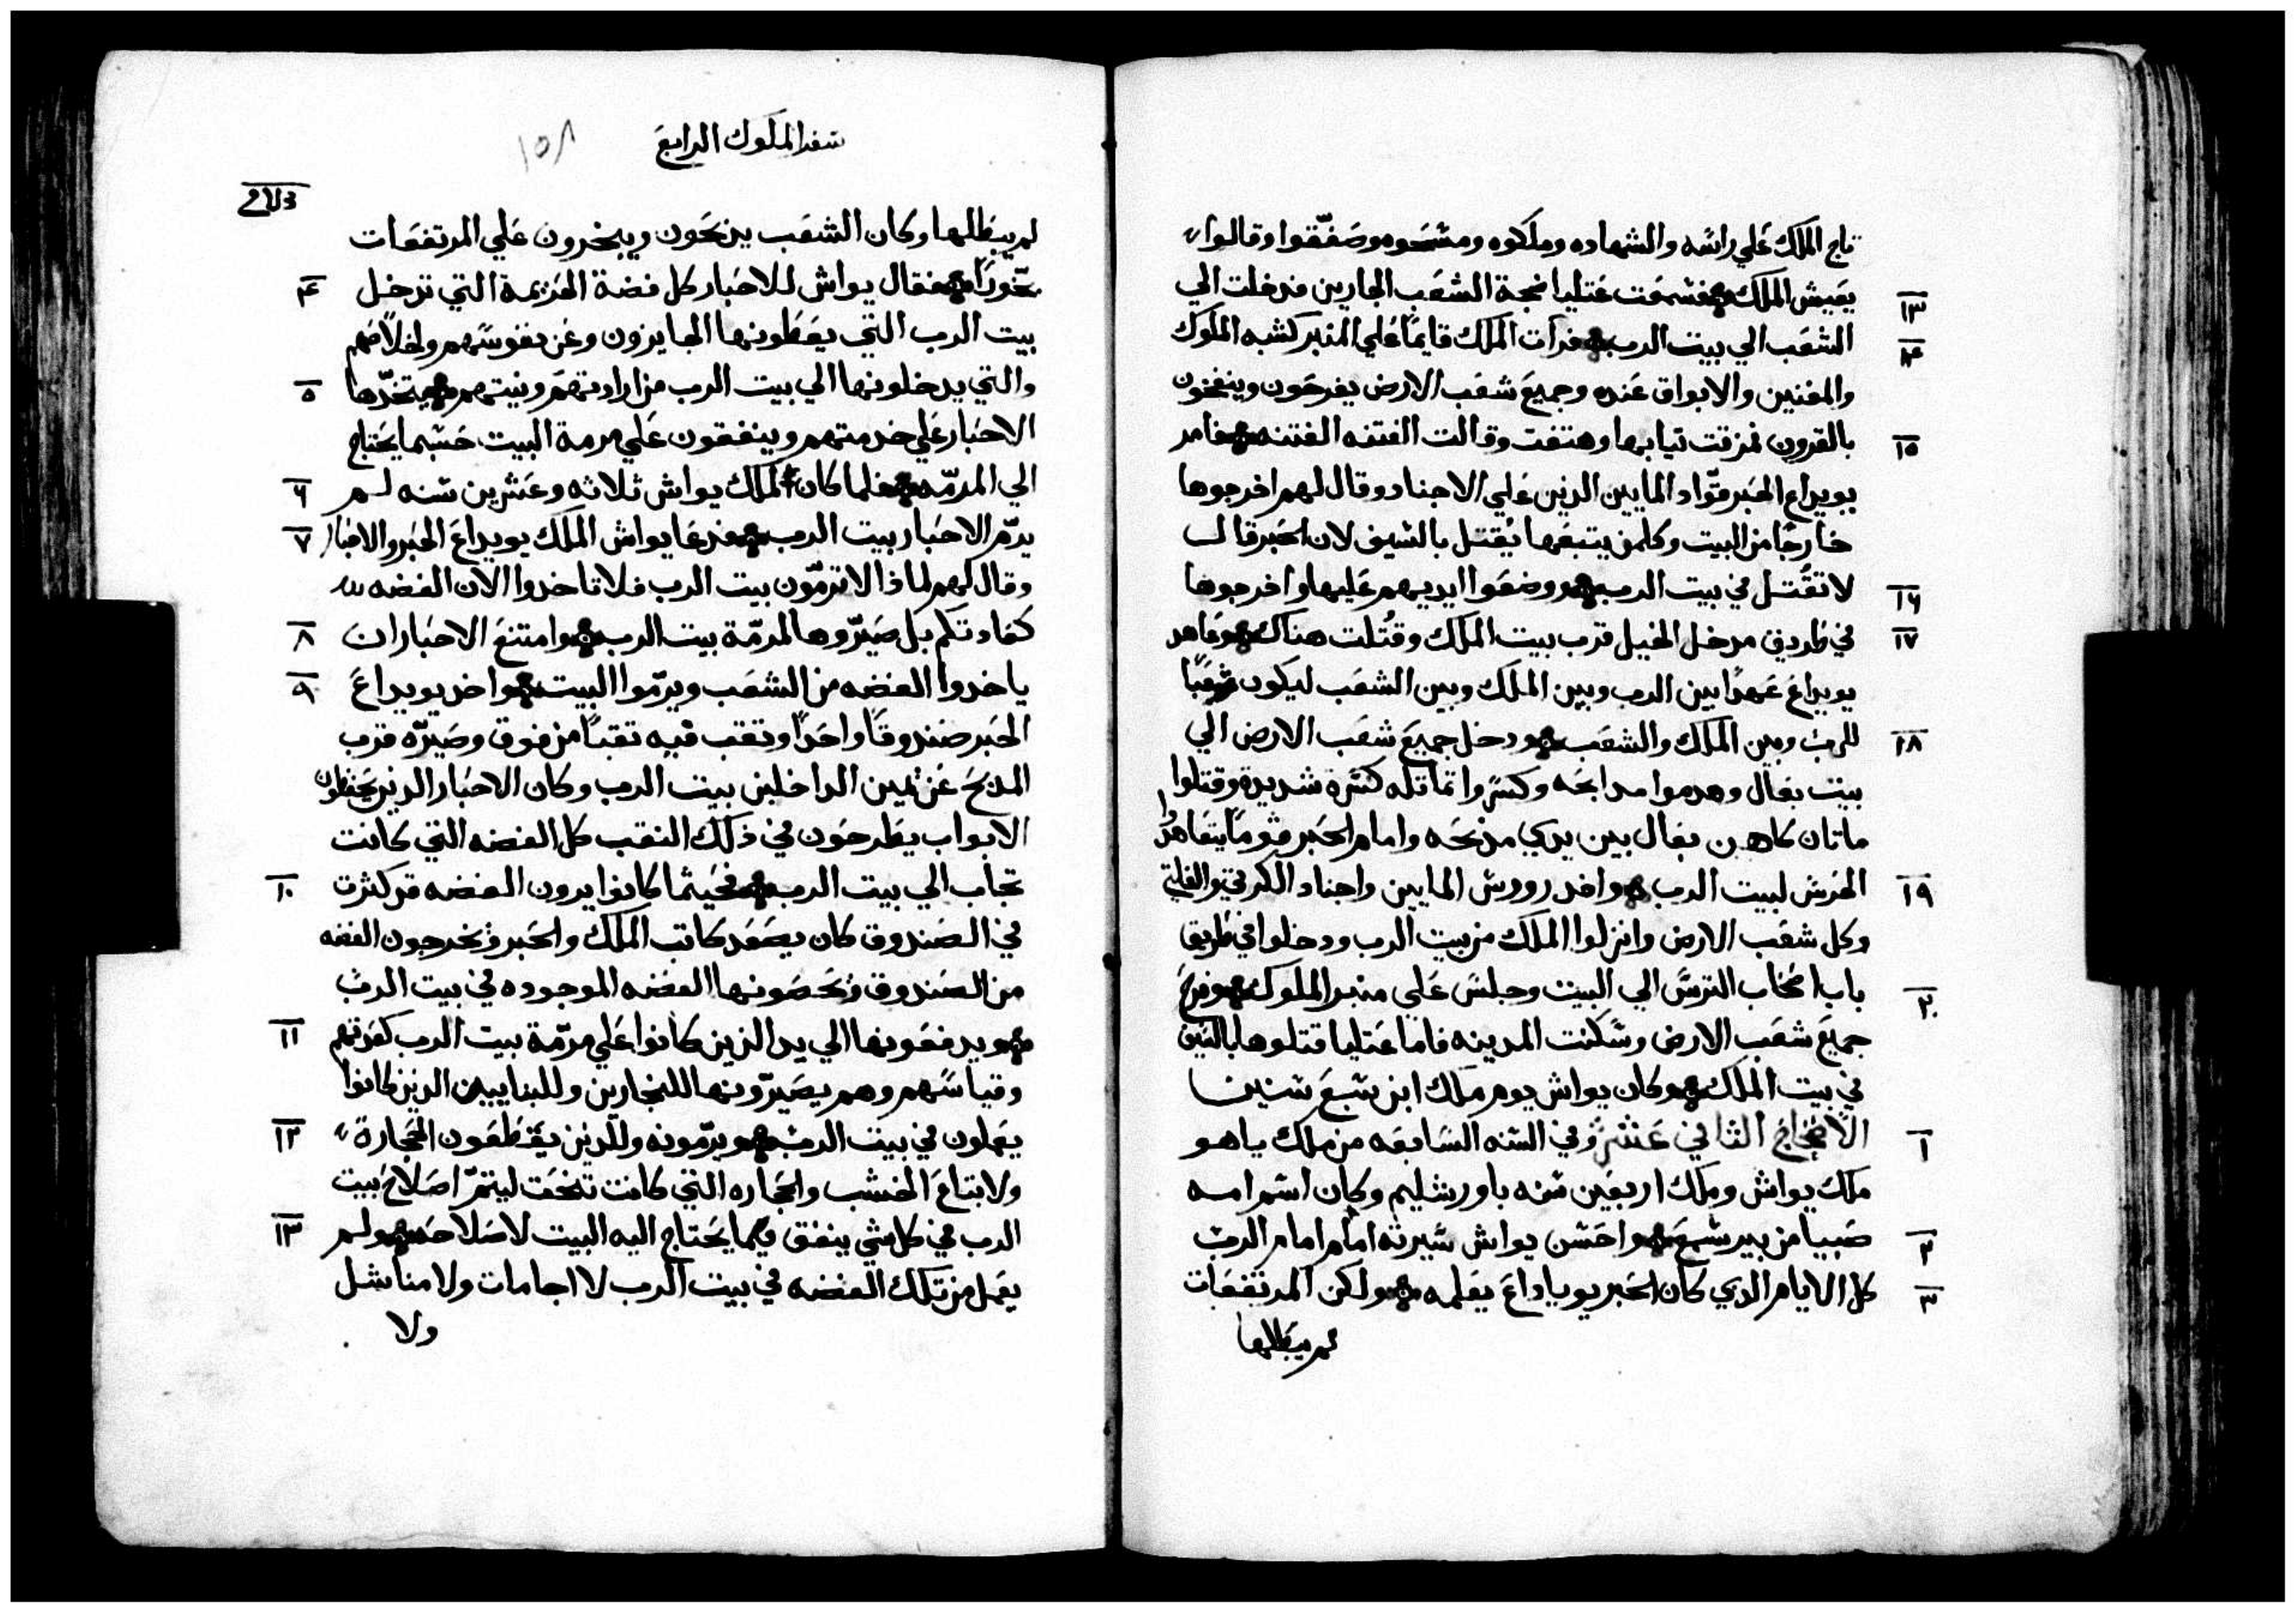 تاج الملك علي راسه والشهاده وملكوه ومسحوه وصفّقوا وقالوا
١٣ يعيش الملك فسمعت عتليا ضجة الشعب الجارين فدخلت الي
١٤ الشعب الي بيت الرب فرات الملك قايمًا علي المنبر كشبه الملوك
والمغنين والابواق عنده وجميع شعب الارض يفرحون وينفخون
١٥ بالقرون فمزقت تيابها وهتفت وقالت الفتنه الفتنه فامر
يويداع الحبر قوّاد المايين الدين علي الاجناد وقال لهم اخرجوها
خارجًا من البيت وكلمن يتبعها يُقتل بالسيف لان الحبر قال
١٦ لا تقُتل في بيت الرب ووضعوا ايديهم عليها واخرجوها
١٧ في طريق مدخل الخيل قرب بيت الملك وقُتلت هناك وعاهد
يويداع عهدًا بين الرب وبين الملك وبين الشعب ليكون شعبًا
١٨ للرب وبين الملك والشعب ودخل جميع شعب الارض الي
بيت بعال وهدموا مدابحه وكسروا تماتله كسرة شديدة وقتلوا
ماتان كاهن بعال بين يدي مدبحه وامام الحبر قومًا يتعاهدُوا
١٩ الحرس لبيت الرب واخد رووس المايين واجناد الكرتي والفلتي
وكل شعب الارض وانزلوا الملك من بيت الرب ودخلوا في طريق
٢٠ باب اصحاب الترس الي البيت وجلس علي منبر الملوك وفرح
جميع شعب الارض وسكنت المدينه فاما عتليا قتلوها بالسيف
في بيت الملك وكان يواش يوم ملك ابن سبع سنين
١ الاصحاح الثاني عشر وفي السنه السابعه من ملك ياهو
ملك يواش وملك اربعين سنه باورشليم وكان اسم امه
٢ صبيا من بير سبع واحسن يواش سيرته امام امام الرب
٣ كل الايام الدي كان الحبر يوياداع يعلمه ولكن المرتفعات
لم يبطلها
سفر الملوك الرابع ١٥٨
لم يبطلها وكان الشعب يدبحون ويبخرون علي المرتفعات
٤ بخّورًا فقال يواش للاحبار كل فضة الهزيمة التي تدخل
بيت الرب التي يعطونها الجايزون وعن نفوسهم ولخلاصهم
٥ والتي يدخلونها الي بيت الرب من ارادتهم ونيتهم يتخدّها
الاحبار علي خدمتهم وينفقون علي مرمة البيت حسبما يحتاج
٦ الي المرمّه فلما كان لملك يواش ثلاثه وعشرين سنه لم
٧ يرمّ الاحبار بيت الرب فدعا يواش الملك يويداع الحبر والاحبار
وقال لهم لماذا لا ترمّون بيت الرب فلا تاخدوا الان الفضه
٨ كعادتكم بل صيّروها لمرمّة بيت الرب وامتنع الاحبار ان
٩ ياخدوا الفضه من الشعب ويرمّوا البيت واخد يويداع
الحبر صندوقًا واحدًا وتقب فيه تقبًا من فوق وصيّره قرب
المدبح عن يمين الداخلين بيت الرب وكان الاحبار الدين يحفظون
الابواب يطرحون في ذلك النقب كل الفضه التي كانت
١٠ تجاب الي بيت الرب فحيثما كانوا يرون الفضه قد كثرت
في الصندوق كان يصعد كاتب الملك والحبر ويخرجون الفضه
من الصندوق ويحصونها الفضه الموجوده في بيت الرب
١١ ويدفعونها الي يد الذين كانوا علي مرمّة بيت الرب كعدتهم
وقياسهم وهم يصيّرونها للنجارين وللبنايين الدين كانوا
١٢ يعملون في بيت الرب ويرمّونه وللدين يقطعون الحجارة
ولابتاع الخشب والحجاره التي كانت تنحت ليتمّ اصلاح بيت
١٣ الرب في كل شي ينفق فيما يحتاج اليه البيت لاصلاحه ولم
يعمل من تلك الفضه في بيت الرب لا اجامات ولا مناشل
ولا